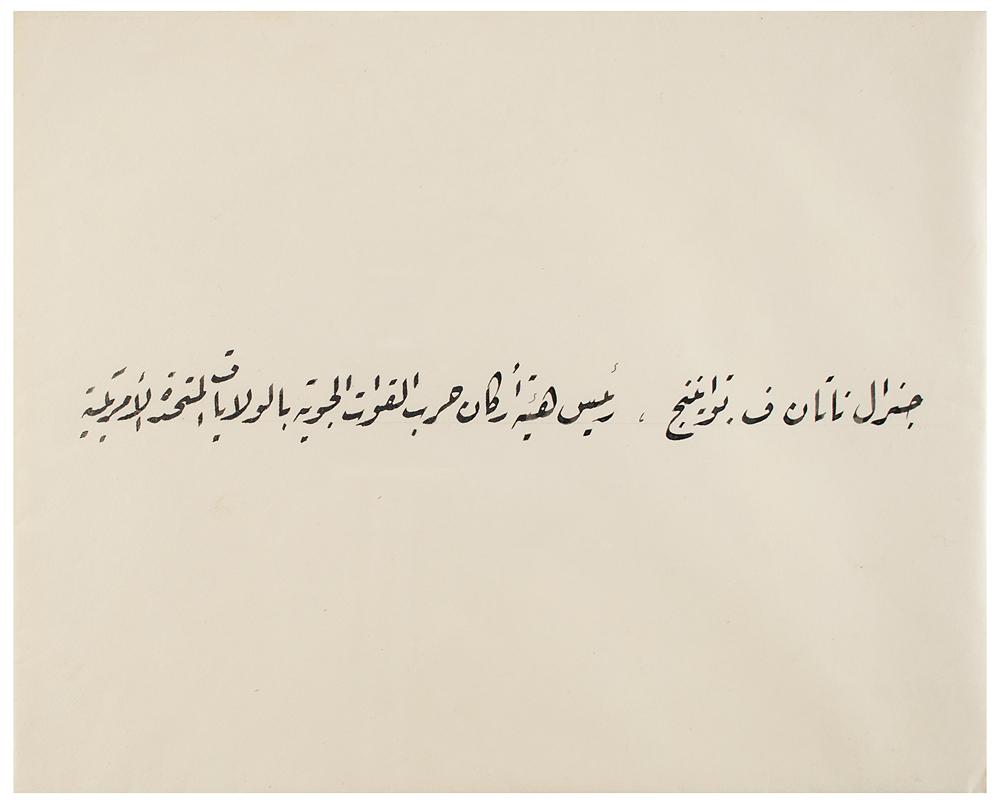 جنرال ناتان ف. توايننج ، رئيس هيئة أركان حرب القوات الجوية بالولايات المتحدة الأمريكية